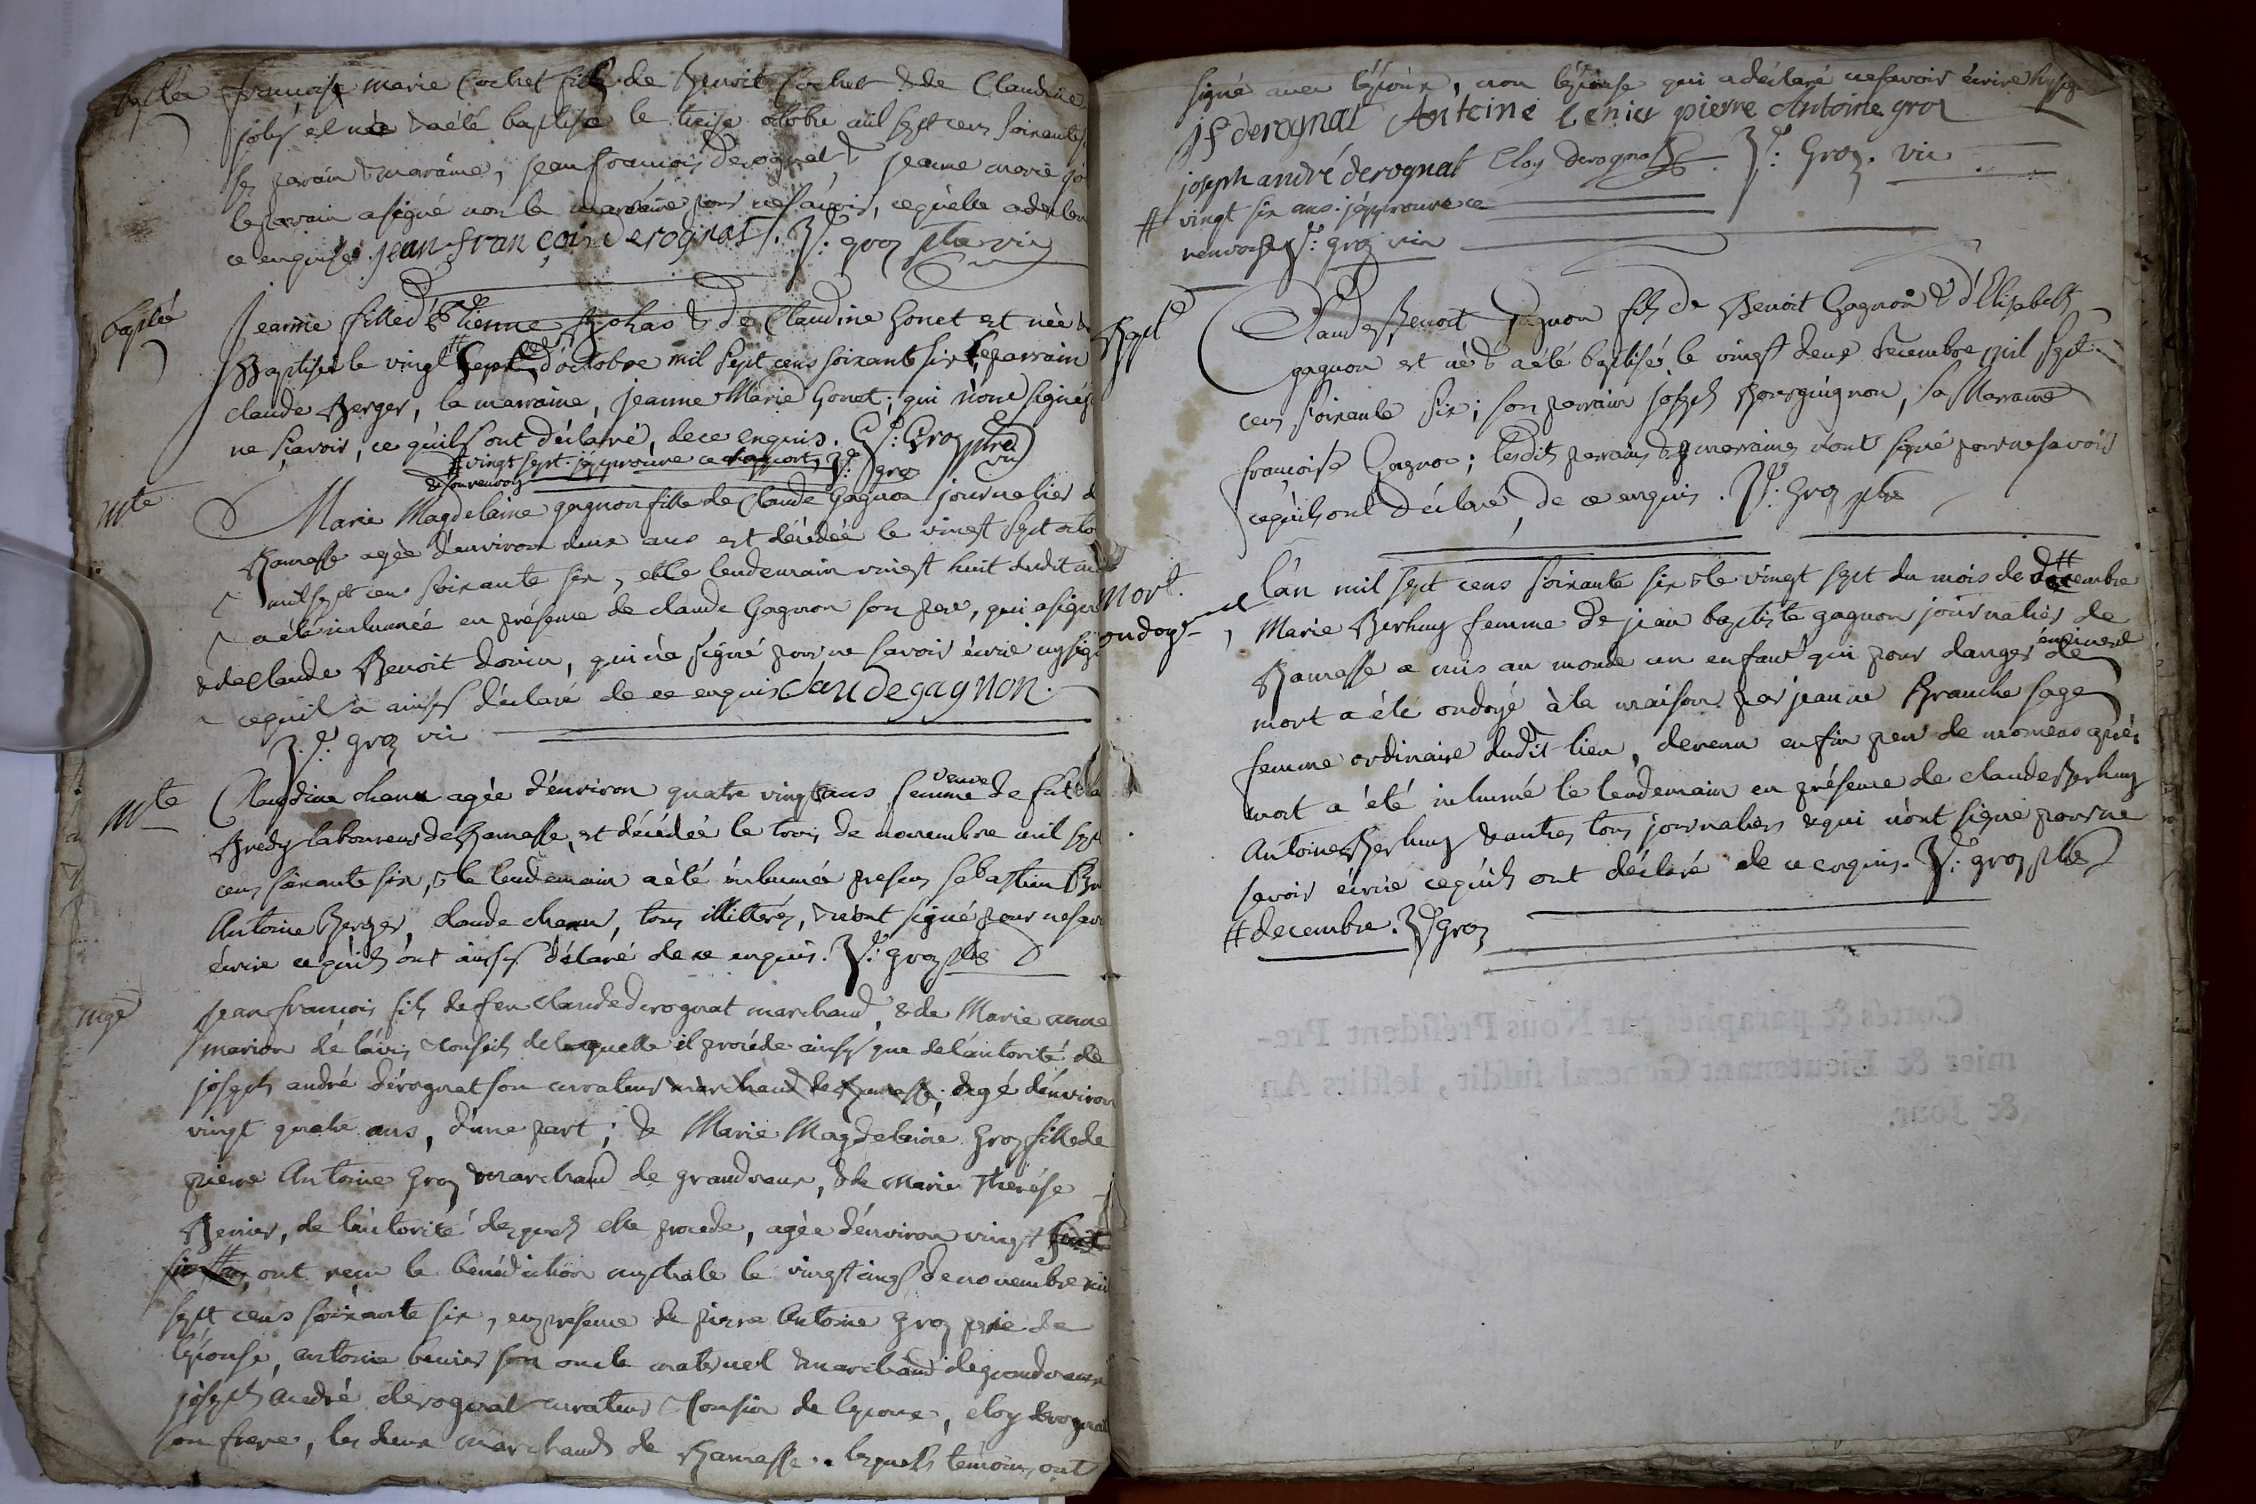 françoise marie Cochet fille de Benoit Cochet & de Claudine
joly est née & a été baptisée le treize octobre mil sept cens soixante
ses parain & maraine, jean françois derognat & jeanne marie
le parain a signé non la maraine pour ne savoir, ce qu'elle a declaré
ce enquise. jean françois derognat. P: groz ptre vic
baptée
Jeanne fille d'Etienne & de Claudine Gonet est née &
Baptisée le vingt sept d'octobre mil sept cens soixante six, le parrain
claude Berger, la marraine, jeanne Marie Gonet; qui n'ont signé p
ne sçavoir, ce qu'ils ont déclaré, de ce enquis. P: Groz ptre
# vingt sept. j'épprouve ce P: groz vic
& son renvoy
mte
Marie Magdelaine gagnon fille de Claude Gagnon journalier d
Bannesse agée d'environ deux ans est décédée le vingt sept octo
mil sept cens soixante six, & le lendemain vingt huit dudit m
a été inhumée en présence de claude Gagnon son pere, qui a signé
& de Claude Benoit donin, qui n'a signé pour ne savoir écrire ny signer
ce qu'il a ainsy déclaré de ce enquis Claude gagnon.
P: groz vic
mte
Claudine chenu agée d'environ quatre vingt ans femme veuve de fut
laboureur de Bannesse, est décédée le trois de novembre mil sept
cens soixante six, & le lendemain a été inhumée presens sebastien
Antoine Berger, claude chenu, tous illitterés, & n'ont signé pour ne savoir
écrire ce qu'ils ont ainsy déclaré de ce enquis. P: groz ptre
mge
jean françois fils de feu claude derognat marchand, & de Marie anne
marion de l'avis & conseils de laquelle il procéde ainsy que de l'autorité de
joseph andré dérognat son curateur marchand de Bannesse; agé d'environ
vingt quatre ans, d'une part; & Marie Magdelaine Groz fille de
pierre Antoine Groz marchand de grandvaux, & de Marie Thérése
Benier, de l'autorité desquels elle procede, agée d'environ vingt
ont reçu la bénédiction nuptiale le vingt cinq de novembre mil
sept cens soixante six, en presence de pierre Antoine Groz pere de
l'épouse, antoine benier son oncle maternel & marchand de grandvaux
joseph andré derognat curateur & cousin de l'epoux, eloy derognat
son frere, les deux marchands de Bannesse. lesquels témoins ont
signé avec l'époux, non l'épouse qui a déclaré ne savoir écrire ny signer
jf derognat Antoine benier pierre Antoine groz
joseph andré derognat Eloy derognat P: Groz. vic
# vingt six ans. j'épprouve ce
renvoy P: groz vic
Bapt
Claude Benoit Gagnon fils de Benoit Gagnon & d'Elisabeth
gagnon est né & a été baptisé le vingt deux decembre mil sept
cens soixante six; son parrain joseph Bourguignon, sa Marraine
françoise Gagnon; lesdits parrain & marraine n'ont signé pour ne savoir
ce qu'ils ont déclaré, de ce enquis. P: Groz ptre
mort.
ondoyé
l'an mil sept cens soixante six & le vingt sept du mois de decembre #
Marie Berhuy femme de jean baptiste gagnon journalier de
Bannesse a mis au monde un enfant qui pour danger eminent de
mort a été ondoyé à la maison par jeanne Branche sage
femme ordinaire dudit lieu, devenu enfin peu de momens après
mort a été inhumé le lendemain en présence de claude Berhuy
Antoine Berhuy & autres tous journaliers & qui n'ont signé pour ne
savoir écrire ce qu'ils ont déclaré de ce enquis. P: groz ptre
# decembre. P: Groz
Cottés & paraphés par Nous Président Pre-
mier & Lieutenant General susdit, lesdits An
& Jour.